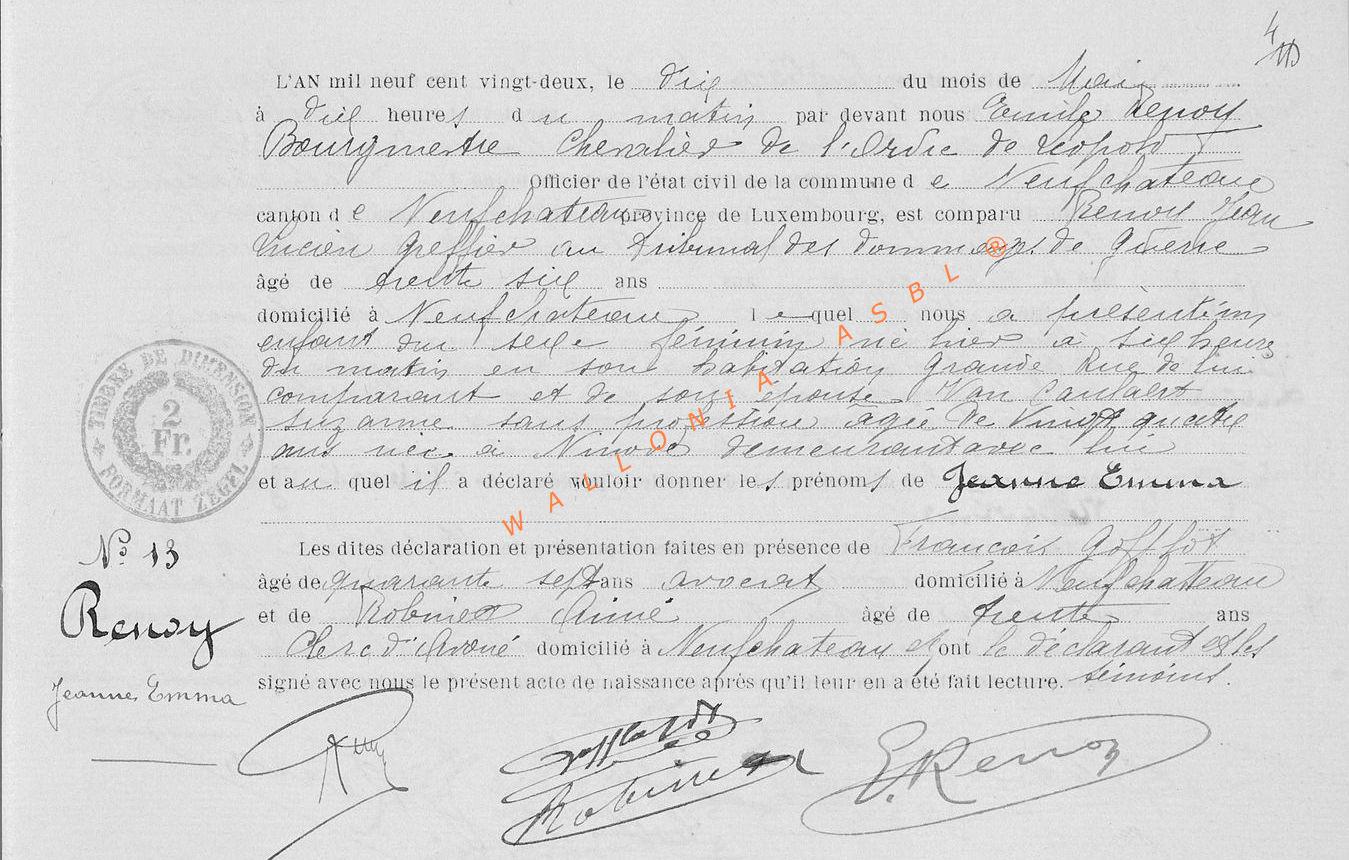 L'AN mil neuf cent vingt-deux, le dix du mois de Mai
à dix heures du matin par devant nous Emile Renoy
Bourgmestre Chevalier de l'Ordre de Léopold
Officier de l'état civil de la commune de Neufchateau
canton de Neufchateau province de Luxembourg, est comparu Renoy Jean
Lucien Greffier au Tribunal des dommages de Guerre
âgé de trente six ans
domicilié à Neufchateau lequel nous a présenté un
enfant du sexe féminin né hier à six heures
du matin en son habitation Grande Rue de lui
comparant et de son épouse Van Caulaert
Suzanne sans profession agée de Vingt quatre
ans née à Ninove demeurant avec lui
et auquel il a déclaré vouloir donner les prénoms de Jeanne Emma
Les dites déclaration et présentation faites en présence de François Gofflot
âgé de quarante sept ans avocat domicilié à Neufchatteau
et de Robinet Aimé âgé de trente ans
Clerc d'Avoué domicilié à Neufchateau et ont le déclarant et les
signé avec nous le présent acte de naissance après qu'il leur en a été fait lecture. témoins.
N° 13
Renoy
Jeanne Emma
TIMBRE DE DIMENSION
2 Fr.
FORMAAT ZEGEL
Robinet
E. Renoy
WALLONIA ASBL ®